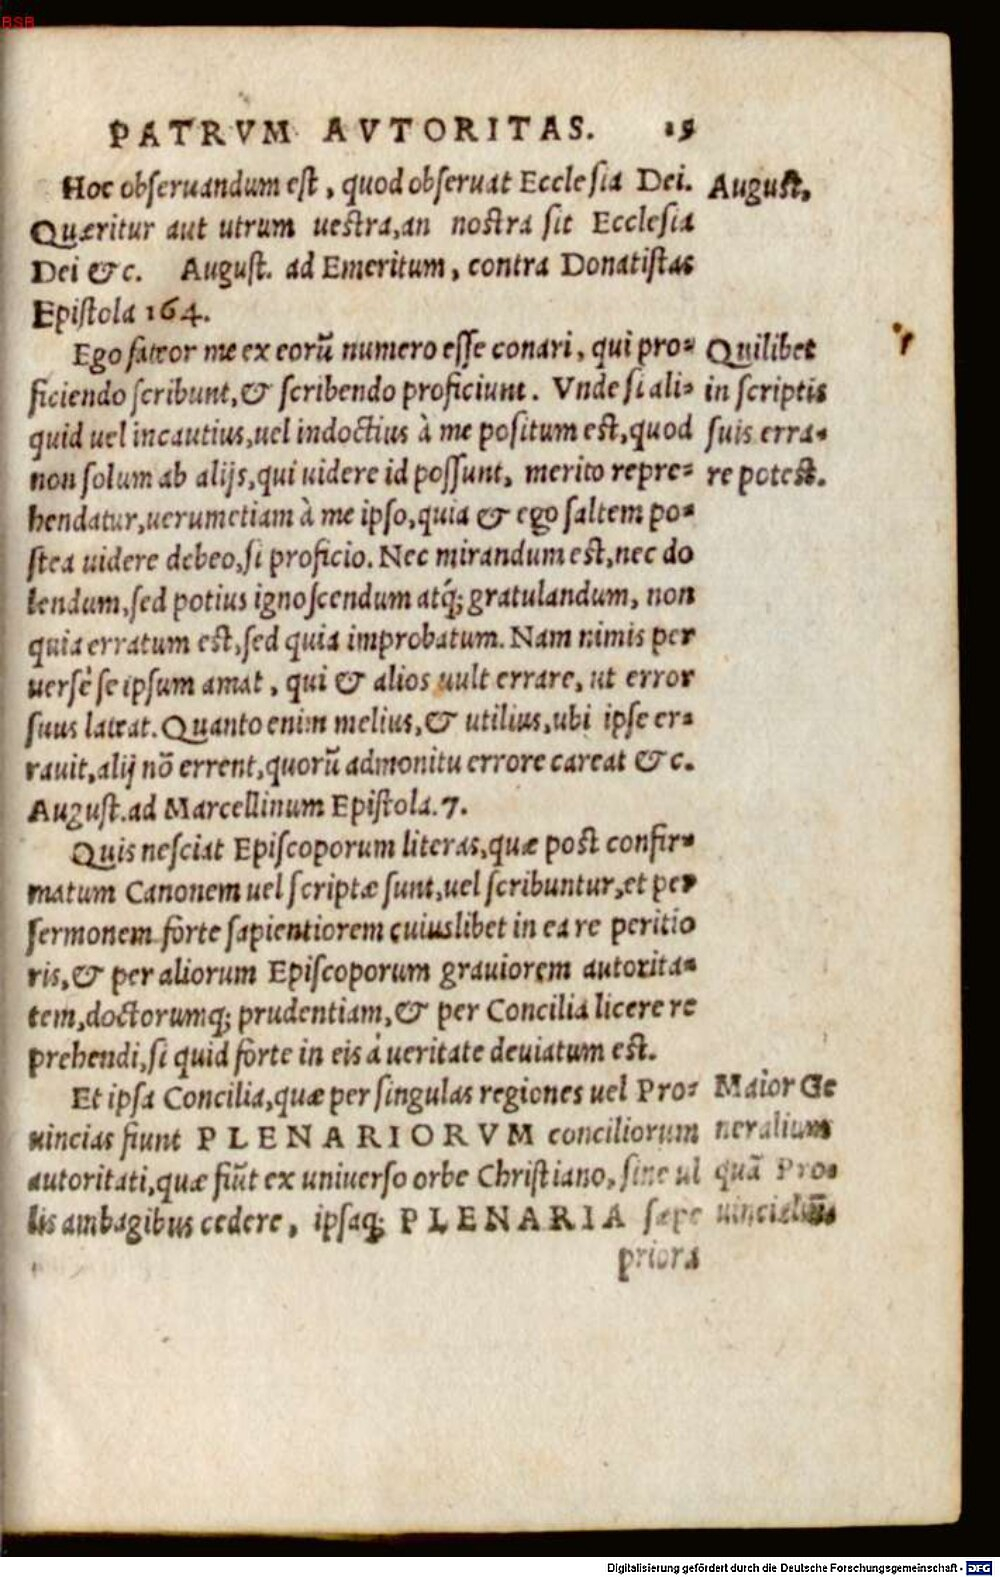 BSB
PATRVM AVTORITAS. 15
Hoc obſeruandum eſt, quod obſeruat Eccleſia Dei. Auguſt.
Quæritur aut utrum ueſtra, an noſtra ſit Eccleſia
Dei &c. Auguſt. ad Emeritum, contra Donatiſtas
Epiſtola 164.
Ego fateor me ex eorũ numero eſſe conari, qui pro= Quilibet
ficiendo ſcribunt, & ſcribendo proficiunt. Vnde ſi ali= in ſcriptis
quid uel incautius, uel indoctius à me poſitum eſt, quod ſuis erra=
non ſolum ab alijs, qui uidere id poſſunt, merito repre= re poteſt.
hendatur, uerumetiam à me ipſo, quia & ego ſaltem po=
ſtea uidere debeo, ſi proficio. Nec mirandum eſt, nec do
lendum, ſed potius ignoſcendum atq́; gratulandum, non
quia erratum eſt, ſed quia improbatum. Nam nimis per
uerſè ſe ipſum amat, qui & alios uult errare, ut error
ſuus lateat. Quanto enim melius, & utilius, ubi ipſe er=
rauit, alij nõ errent, quorũ admonitu errore careat &c.
Auguſt. ad Marcellinum Epiſtola. 7.
Quis neſciat Epiſcoporum literas, quæ poſt confir=
matum Canonem uel ſcriptæ ſunt, uel ſcribuntur, et per
ſermonem forte ſapientiorem cuiuslibet in ea re peritio
ris, & per aliorum Epiſcoporum grauiorem autorita=
tem, doctorumq; prudentiam, & per Concilia licere re
prehendi, ſi quid forte in eis á ueritate deuiatum eſt.
Et ipſa Concilia, quæ per ſingulas regiones uel Pro= Maior Ge
uincias fiunt PLENARIORVM conciliorum neralium
autoritati, quæ fiũt ex uniuerſo orbe Chriſtiano, ſine ul quã Pro=
lis ambagibus cedere, ipſaq; PLENARIA ſæpe uincialiũ
priora
Digitalisierung gefördert durch die Deutsche Forschungsgemeinschaft - DFG